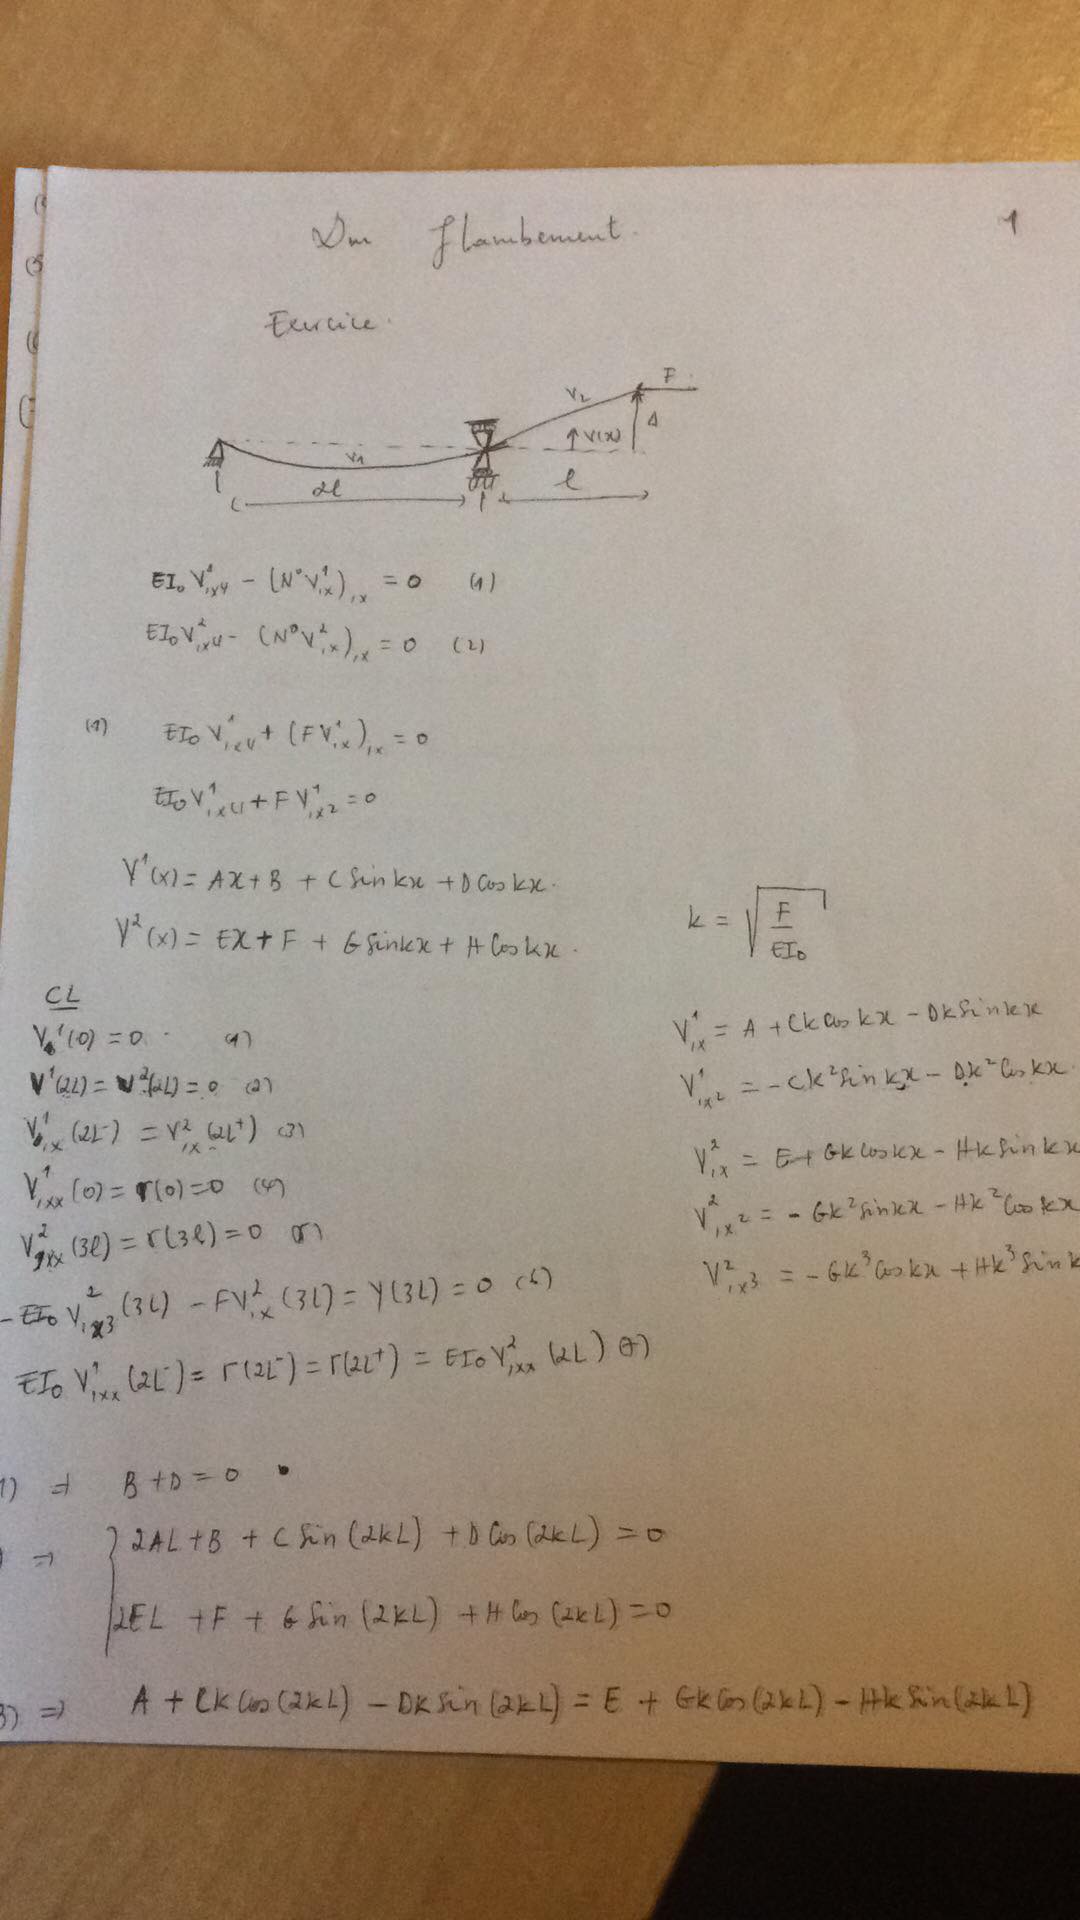 Dm flambement.
1
Exercice.
F
V2
Δ
V(x)
V1
2l
l
EI₀ V¹,x4 - (N⁰V¹,x),x = 0 (1)
EI₀V²,x4 - (N⁰V²,x),x = 0 (2)
(1) EI₀ V¹,x4 + (FV¹,x),x = 0
EI₀V¹,x4 + F V¹,x2 = 0
V¹(x) = Ax + B + C Sin kx + D Cos kx.
V²(x) = Ex + F + G Sin kx + H Cos kx.
k = √(F/EI₀)
CL
V¹(0) = 0 (1)
V¹(2L) = V²(2L) = 0 (2)
V¹,x(2L⁻) = V²,x(2L⁺) (3)
V¹,xx(0) = Γ(0) = 0 (4)
V²,xx(3l) = Γ(3l) = 0 (5)
- EI₀ V²,x3(3L) - FV²,x(3L) = Y(3L) = 0 (6)
EI₀ V¹,xx(2L⁻) = Γ(2L⁻) = Γ(2L⁺) = EI₀ V²,xx(2L) (7)
V¹,x = A + Ck Cos kx - Dk Sin kx
V¹,x2 = -Ck² Sin kx - Dk² Cos kx.
V²,x = E + Gk Cos kx - Hk Sin kx
V²,x2 = - Gk² Sin kx - Hk² Cos kx
V²,x3 = - Gk³ Cos kx + Hk³ Sin k
1) ⇒ B + D = 0
) ⇒ { 2AL + B + C Sin(2kL) + D Cos(2kL) = 0
2EL + F + G Sin(2kL) + H Cos(2kL) = 0
3) ⇒ A + Ck Cos(2kL) - Dk Sin(2kL) = E + Gk Cos(2kL) - Hk Sin(2kL)